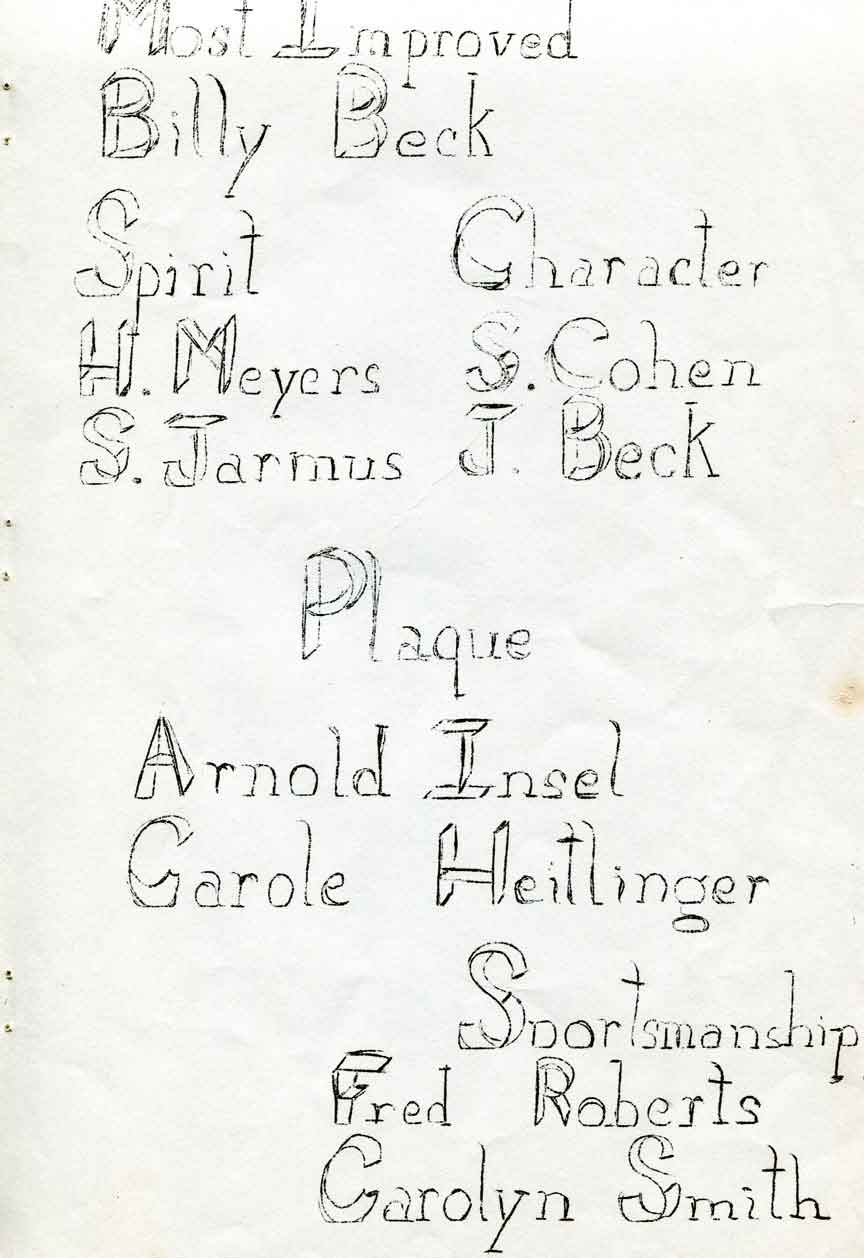 Most Improved
Billy Beck
Spirit Character
H. Meyers S. Cohen
S. Jarmus J. Beck
Plaque
Arnold Insel
Carole Heitlinger
Sportsmanship
Fred Roberts
Carolyn Smith